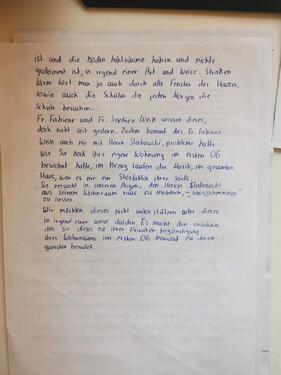 ist und die Böden hohlräume haben und nichts
gedämmt ist, in irgend einer Art und Weise. Straßen
Lärm hört man ja auch durch alle Fenster des Hauses,
sowie auch die Schüler die jeden Morgen die
Schule besuchen.
Fr. Fabiene und Fr. Sophira Weiß wissen dieses,
doch nicht seit gestern. Zudem kommt das Fr. Fabiene
Weiß auch nie mit Herrn Slabowski, probleme hatte
Wie Sie noch ihre eigene Wohnung im ersten OG
bewohnt hatte, im bezug lauten der Musik, im gesamten
Haus, war es nie ein Störfaktor ihrer seits.
Sie versucht in unseren Augen, den Herrn Slabowski
aus seinem Wohnraum raus zu
zu lassen.
Wir möchten dieses nicht unterstützen oder dieses
in irgend einer weise dulden. Es macht den anschein
das sie dieses zu ihrer Privaten begünstigung,
ihres Wohnraums im ersten OG bewusst zu ihren
gunsten benutzt.